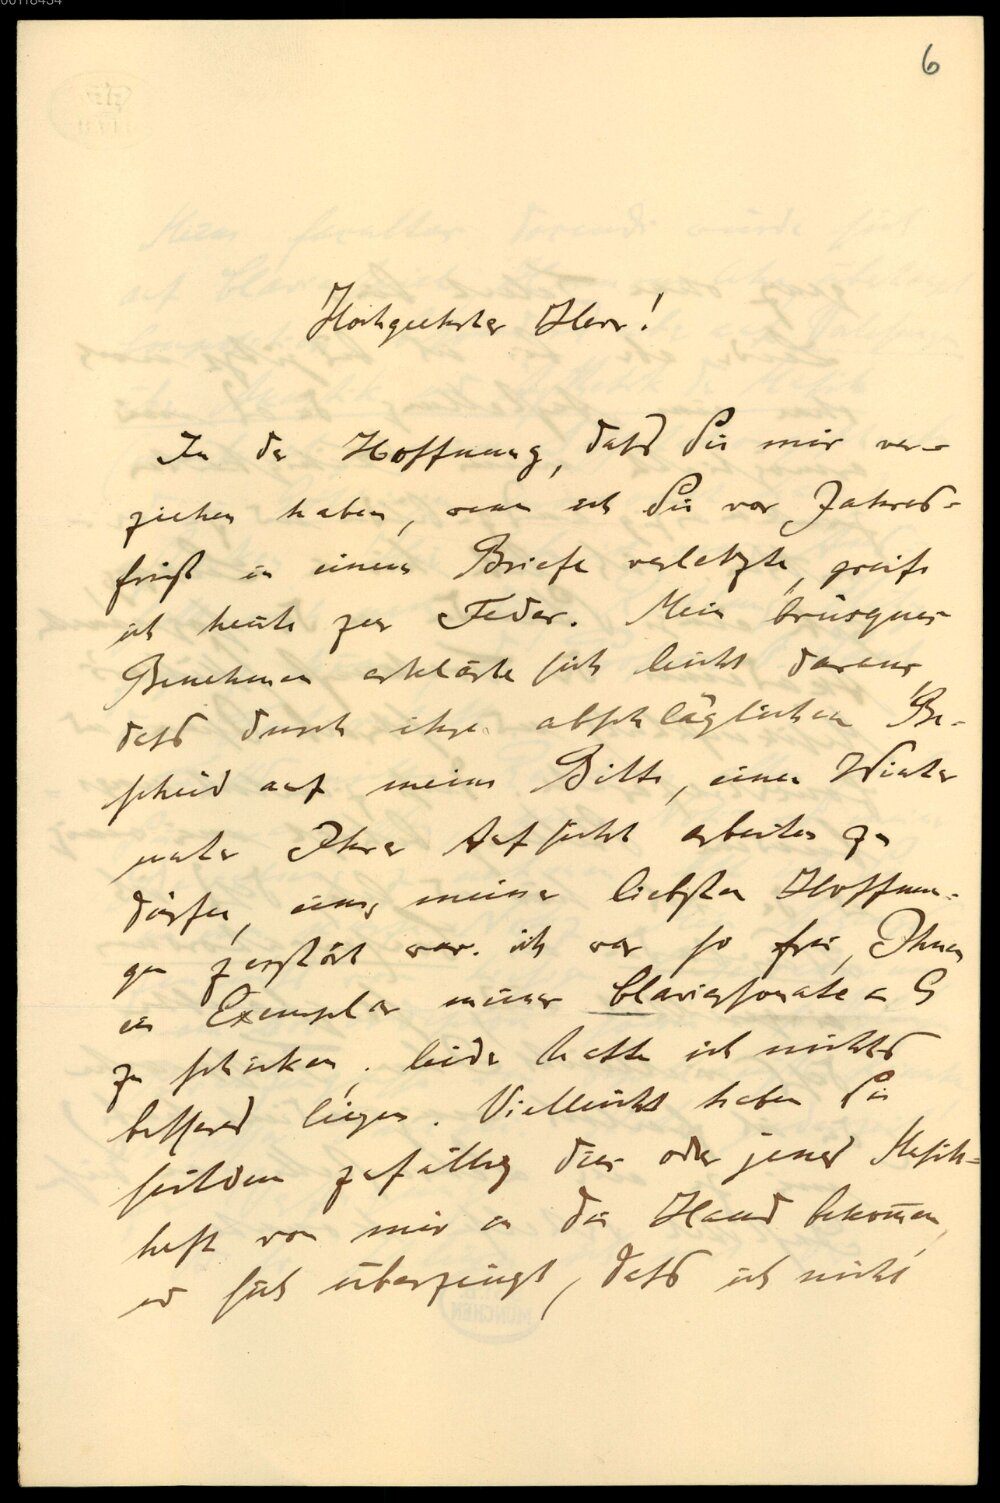 00118434
6
Hochgeehrter Herr!
In der Hoffnung, dass Sie mir ver-
ziehen haben, wenn ich Sie vor Jahres-
frist in einem Briefe verletzte, greife
ich heute zur Feder. Mein brüsques
Benehmen erklärte sich leicht daraus
dass durch ihren abschläglichen Be-
scheid auf meine Bitte, einen Winter
unter Ihrer Aufsicht arbeiten zu
dürfen, eine meiner liebsten Hoffnun-
gen zerstört war. ich war so frei, Ihnen
ein Exemplar meiner Claviersonate in G
zu schicken, leider hatte ich nichts
besseres liegen. Vielleicht haben Sie
seitdem zufällig dies oder jenes Musik-
heft von mir in die Hand bekommen,
und sich überzeugt, dass ich nicht
MÜNCHEN